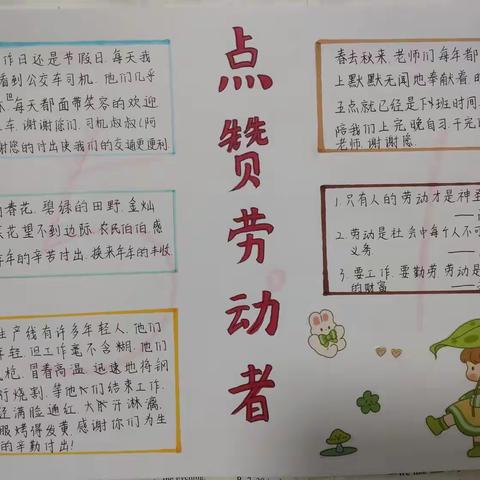 点赞劳动者
作日还是节假日.每天我
看到公交车司机.他们几乎
每天都面带笑容的欢迎
车.谢谢您们.司机叔叔(阿
谢您的付出使我们的交通更便利.
春花.碧绿的田野.金灿
花望不到边际.农民伯伯.感
年的辛苦付出.换来年年的丰收.
生产线有许多年轻人.他们
年轻.但工作毫不含糊.他们
枪.冒着高温.迅速地将钢
行烧割.等他们结束工作.
经满脸通红.大脸汗淋漓.
服烤得发黄.感谢你们为生
的辛勤付出!
春去秋来.老师们每年都
上默默无闻地奉献着
五点就已经是下班时间.
陪我们上完晚自习.干完
老师.谢谢您.
1.只有人的劳动才是神圣
2.劳动是社会中每个人不可
义务.
3.要工作.要勤劳.劳动是
的财富.